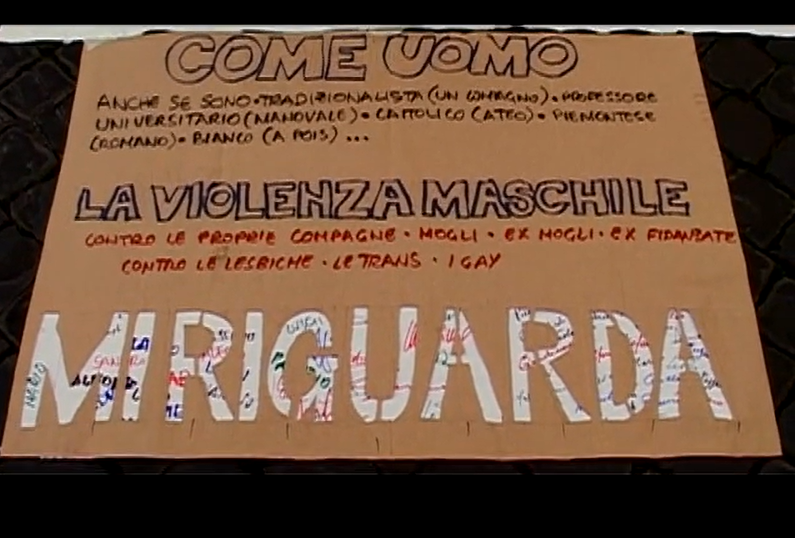 COME UOMO
ANCHE SE SONO • TRADIZIONALISTA (UN COMPAGNO) • PROFESSORE
UNIVERSITARIO (MANOVALE) • CATTOLICO (ATEO) • PIEMONTESE
(ROMANO) • BIANCO (A POIS) ...
LA VIOLENZA MASCHILE
CONTRO LE PROPRIE COMPAGNE • MOGLI • EX MOGLI • EX FIDANZATE
CONTRO LE LESBICHE • LE TRANS • I GAY
MI RIGUARDA
MARIO